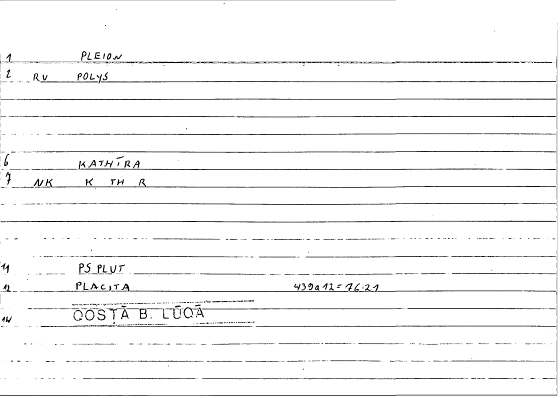 1 PLEION
2 RV POLYS
6 KATHĪRA
7 NK K TH R
11 PS PLUT
12 PLACITA 439a12=76.21
14 QOSṬĀ B. LŪQĀ